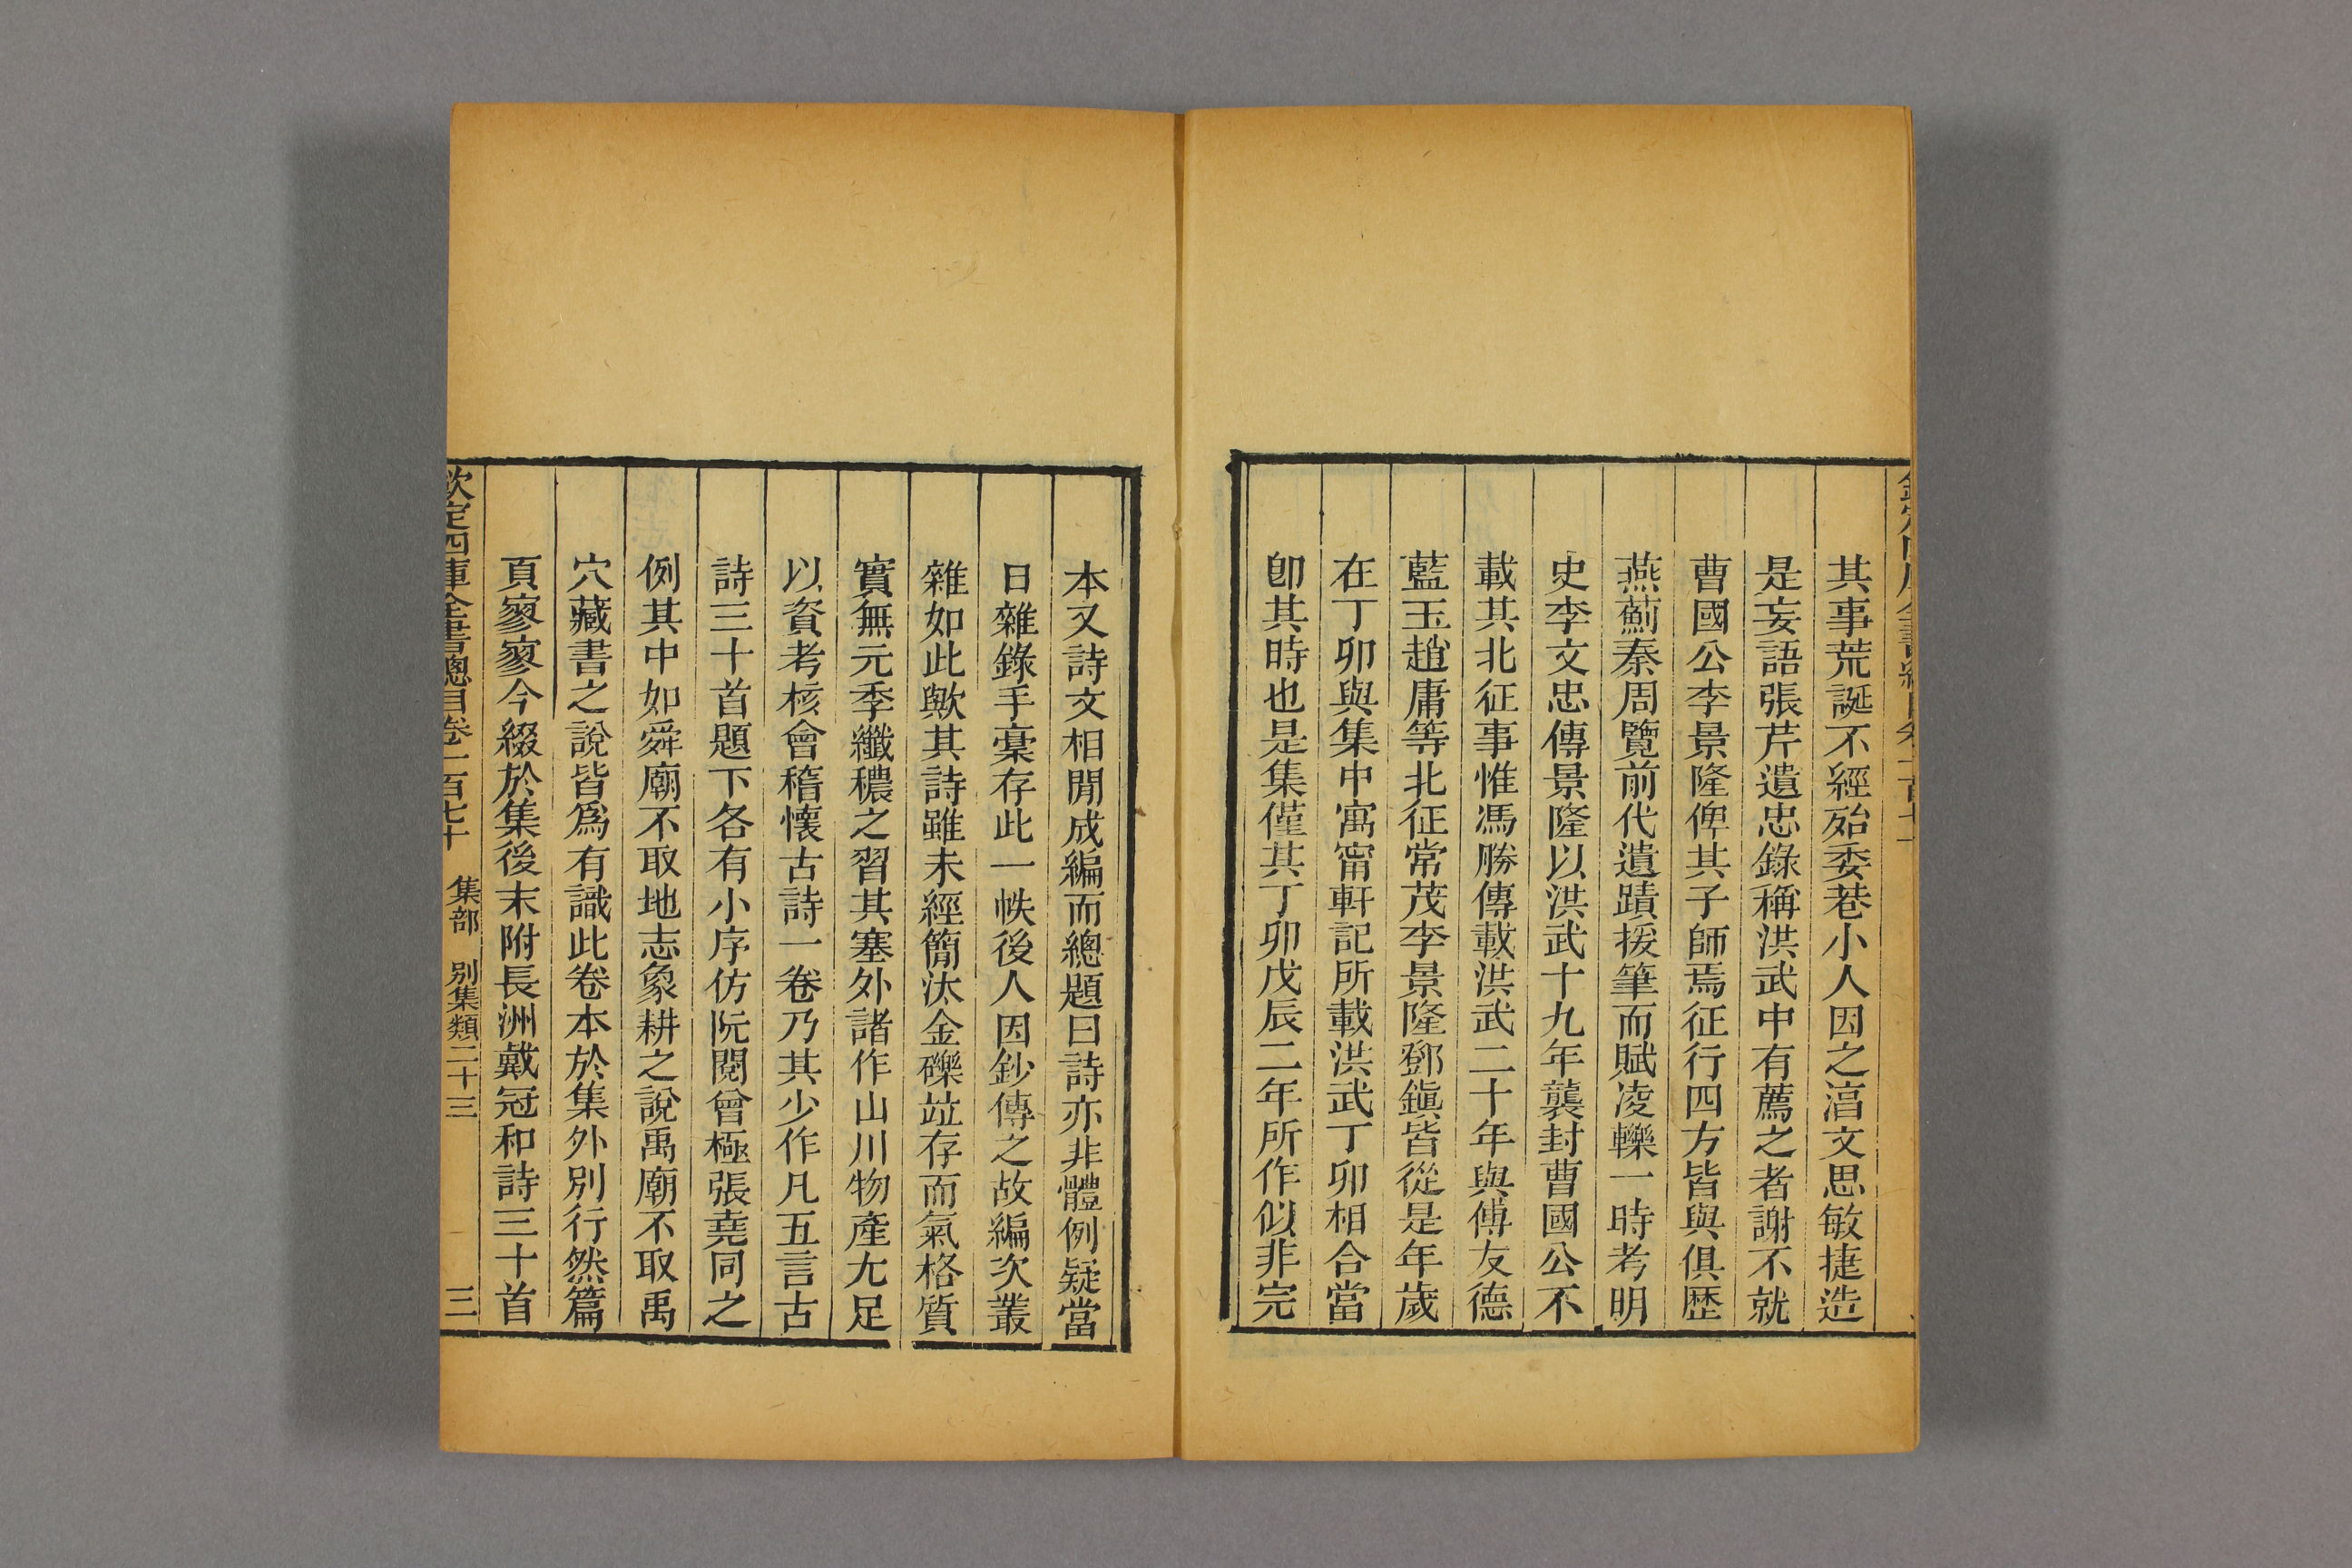 其事荒誕不經殆委巷小人因之湻文思敏捷造
是妄語張芹遺忠錄稱洪武中有薦之者謝不就
曹國公李景隆俾其子師焉征行四方皆與俱歷
燕薊秦周覽前代遺蹟援筆而賦凌轢一時考明
史李文忠傳景隆以洪武十九年襲封曹國公不
載其北征事惟馮勝傳載洪武二十年與傅友德
藍玉趙庸等北征常茂李景隆鄧鎭皆從是年歲
在丁卯與集中寓甯軒記所載洪武丁卯相合當
卽其時也是集僅其丁卯戊辰二年所作似非完
本又詩文相閒成編而總題曰詩亦非體例疑當
日雜錄手稾存此一帙後人因鈔傳之故編次叢
雜如此歟其詩雖未經簡汰金礫竝存而氣格質
實無元季纖穠之習其塞外諸作山川物產尤足
以資考核會稽懷古詩一卷乃其少作凡五言古
詩三十首題下各有小序仿阮閱曾極張堯同之
例其中如舜廟不取地志象耕之說禹廟不取禹
穴藏書之說皆爲有識此卷本於集外別行然篇
頁寥寥今綴於集後末附長洲戴冠和詩三十首
欽定四庫全書總目卷一百七十 集部 別集類二十三 三